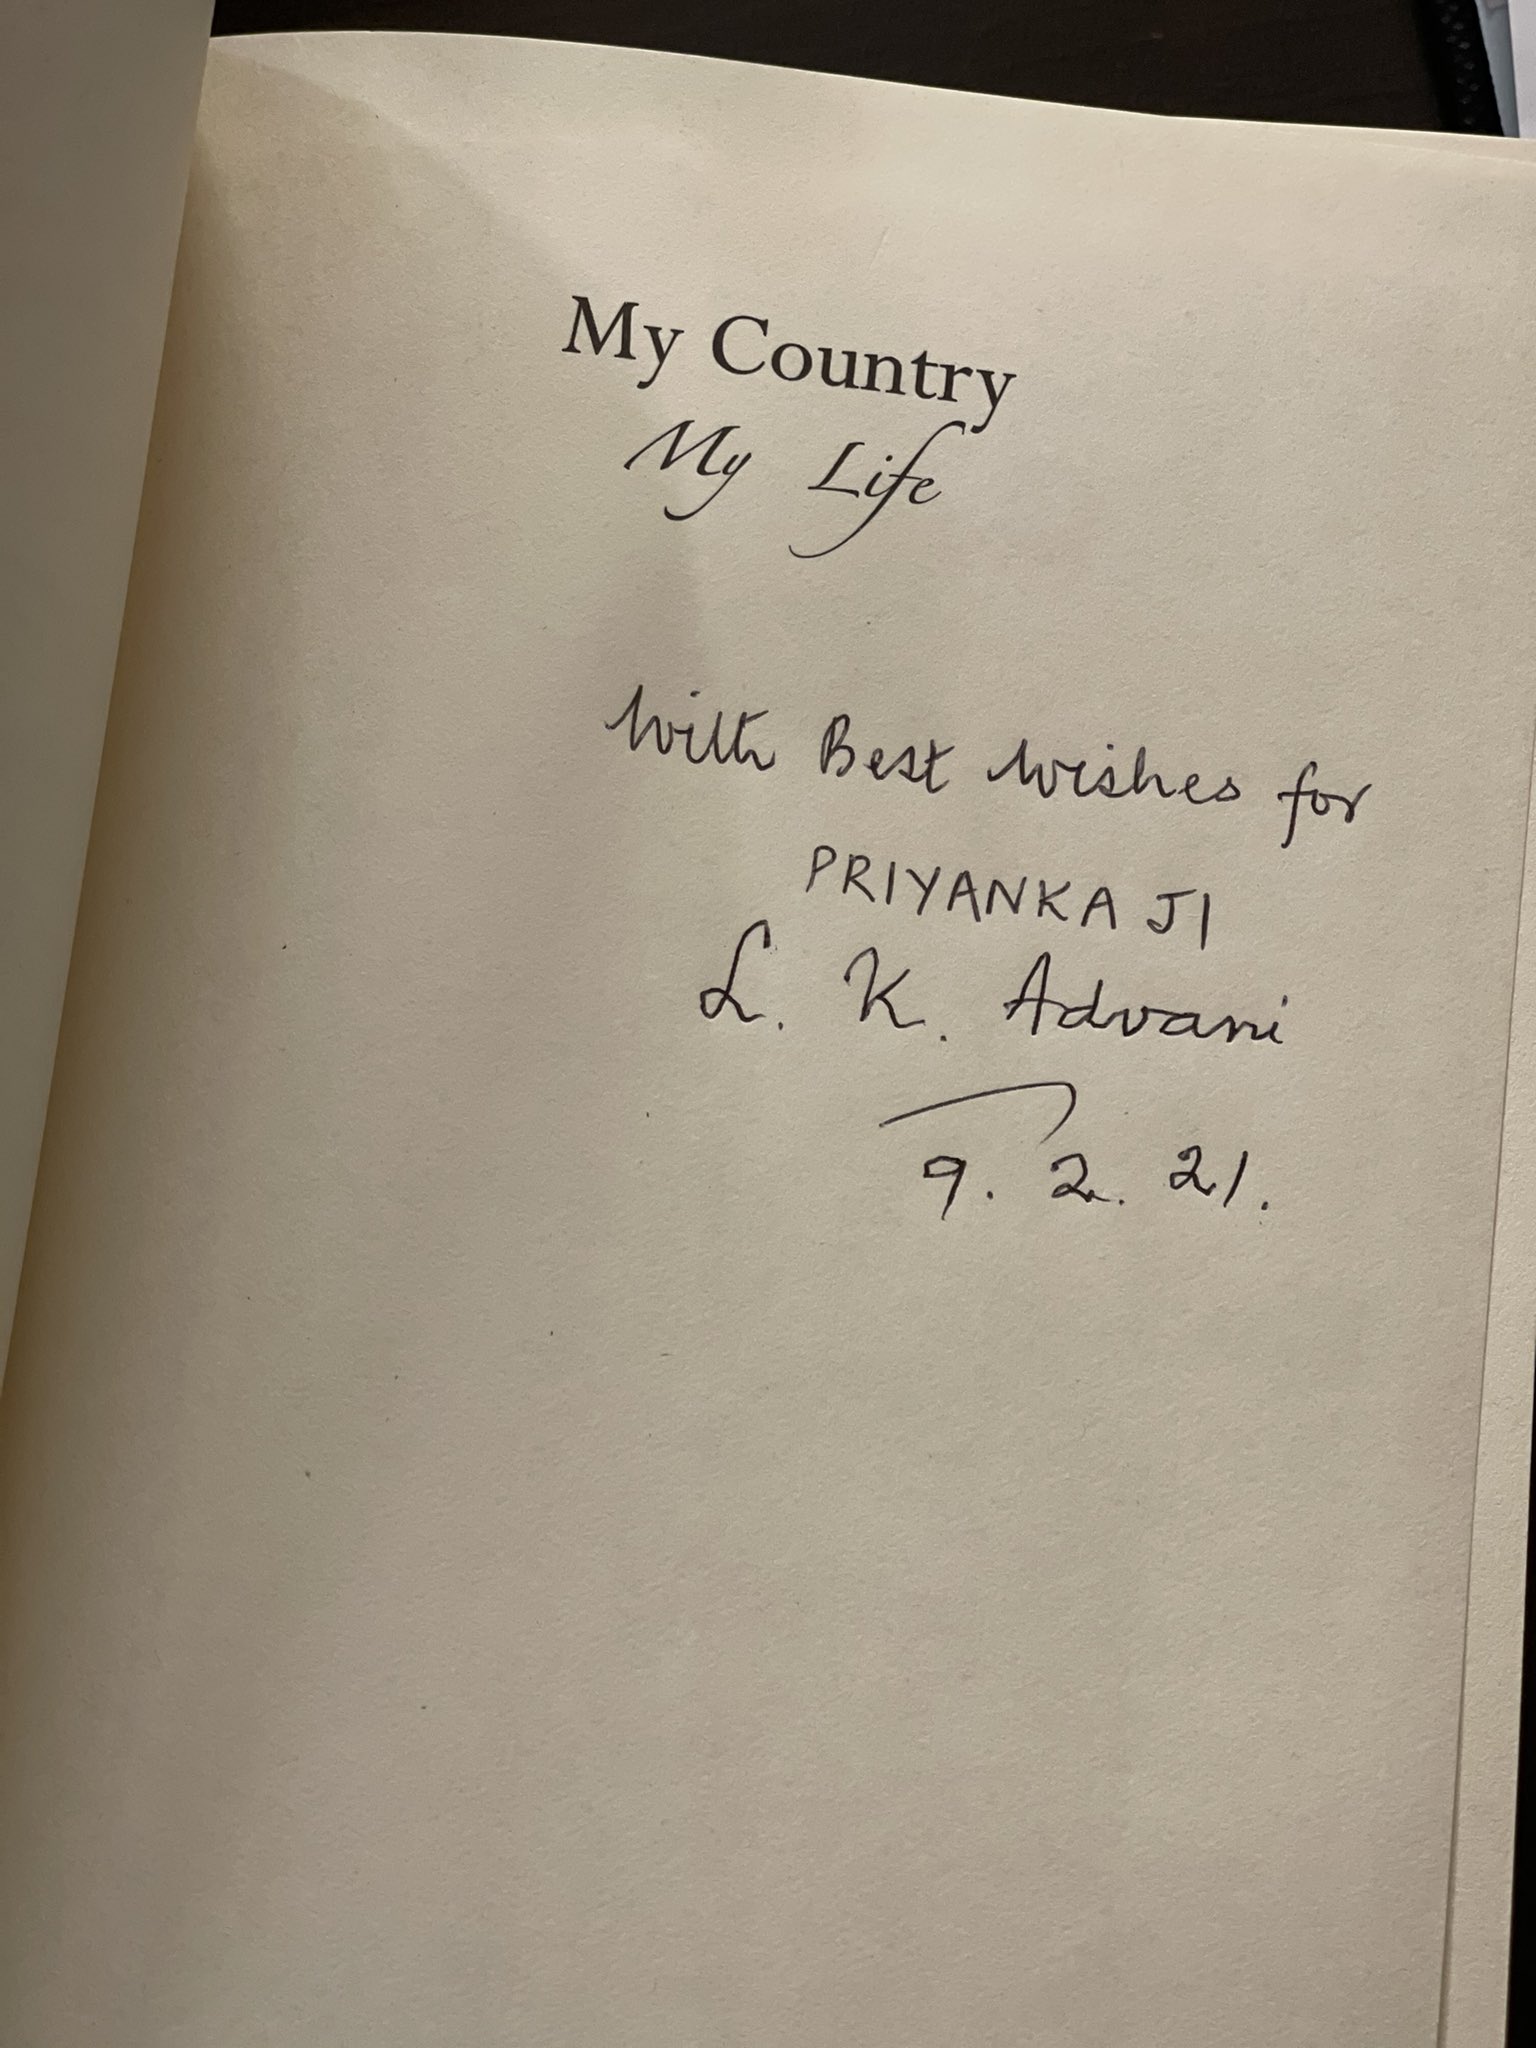 My Country
My Life
With Best Wishes for
PRIYANKA JI
L. K. Advani
9. 2. 21.